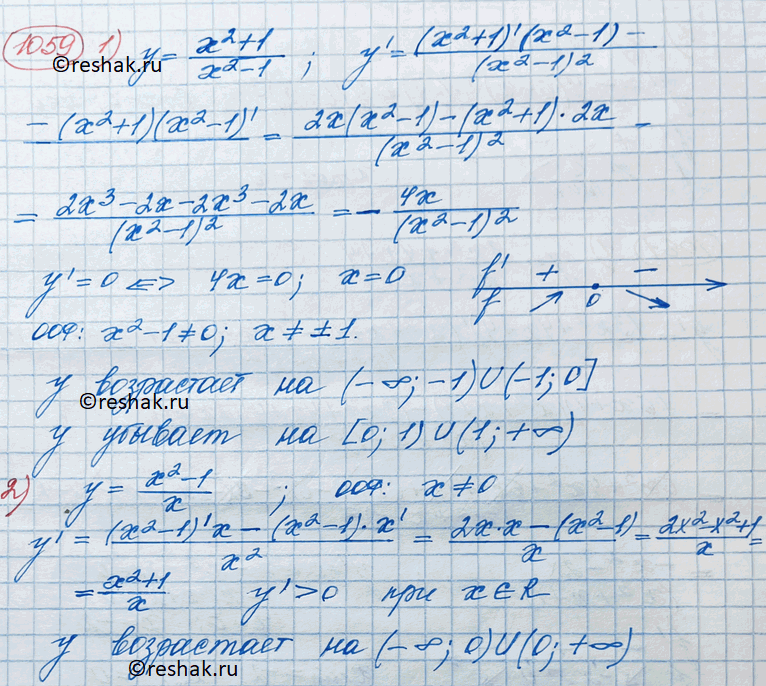 1059 1) y = (x²+1)/(x²-1) ; y' = ((x²+1)'(x²-1) -)/(x²-1)²
©reshak.ru
- (x²+1)(x²-1)' = (2x(x²-1) - (x²+1)·2x)/(x²-1)² -
= (2x³-2x-2x³-2x)/(x²-1)² = - 4x/(x²-1)²
y' = 0 <=> 4x = 0; x = 0 f' + -
f ↗ 0 ↘
ООФ: x²-1≠0; x ≠ ±1.
y возрастает на (-∞; -1) U (-1; 0]
©reshak.ru
y убывает на [0; 1) U (1; +∞)
2) y = (x²-1)/x ; ООФ: x ≠ 0
y' = ((x²-1)'x - (x²-1)·x')/x² = (2x·x - (x²-1))/x = (2x²-x²+1)/x =
= (x²+1)/x y' > 0 при x ∈ R
y возрастает на (-∞; 0) U (0; +∞)
©reshak.ru